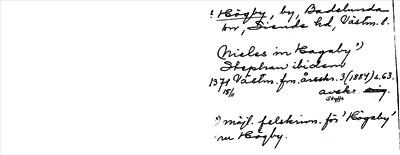 ! Högby, by, Badelunda
sn, Siende hd, Västm. l.
Nicles in Hagaby ¹)
Stephan ibidem
1371 Västm. fm. årsskr. 3 (1884) s. 63.
15/11 avskr.
Styffe
¹) möjl. felskrivn. för 'Högaby'
nu Högby.